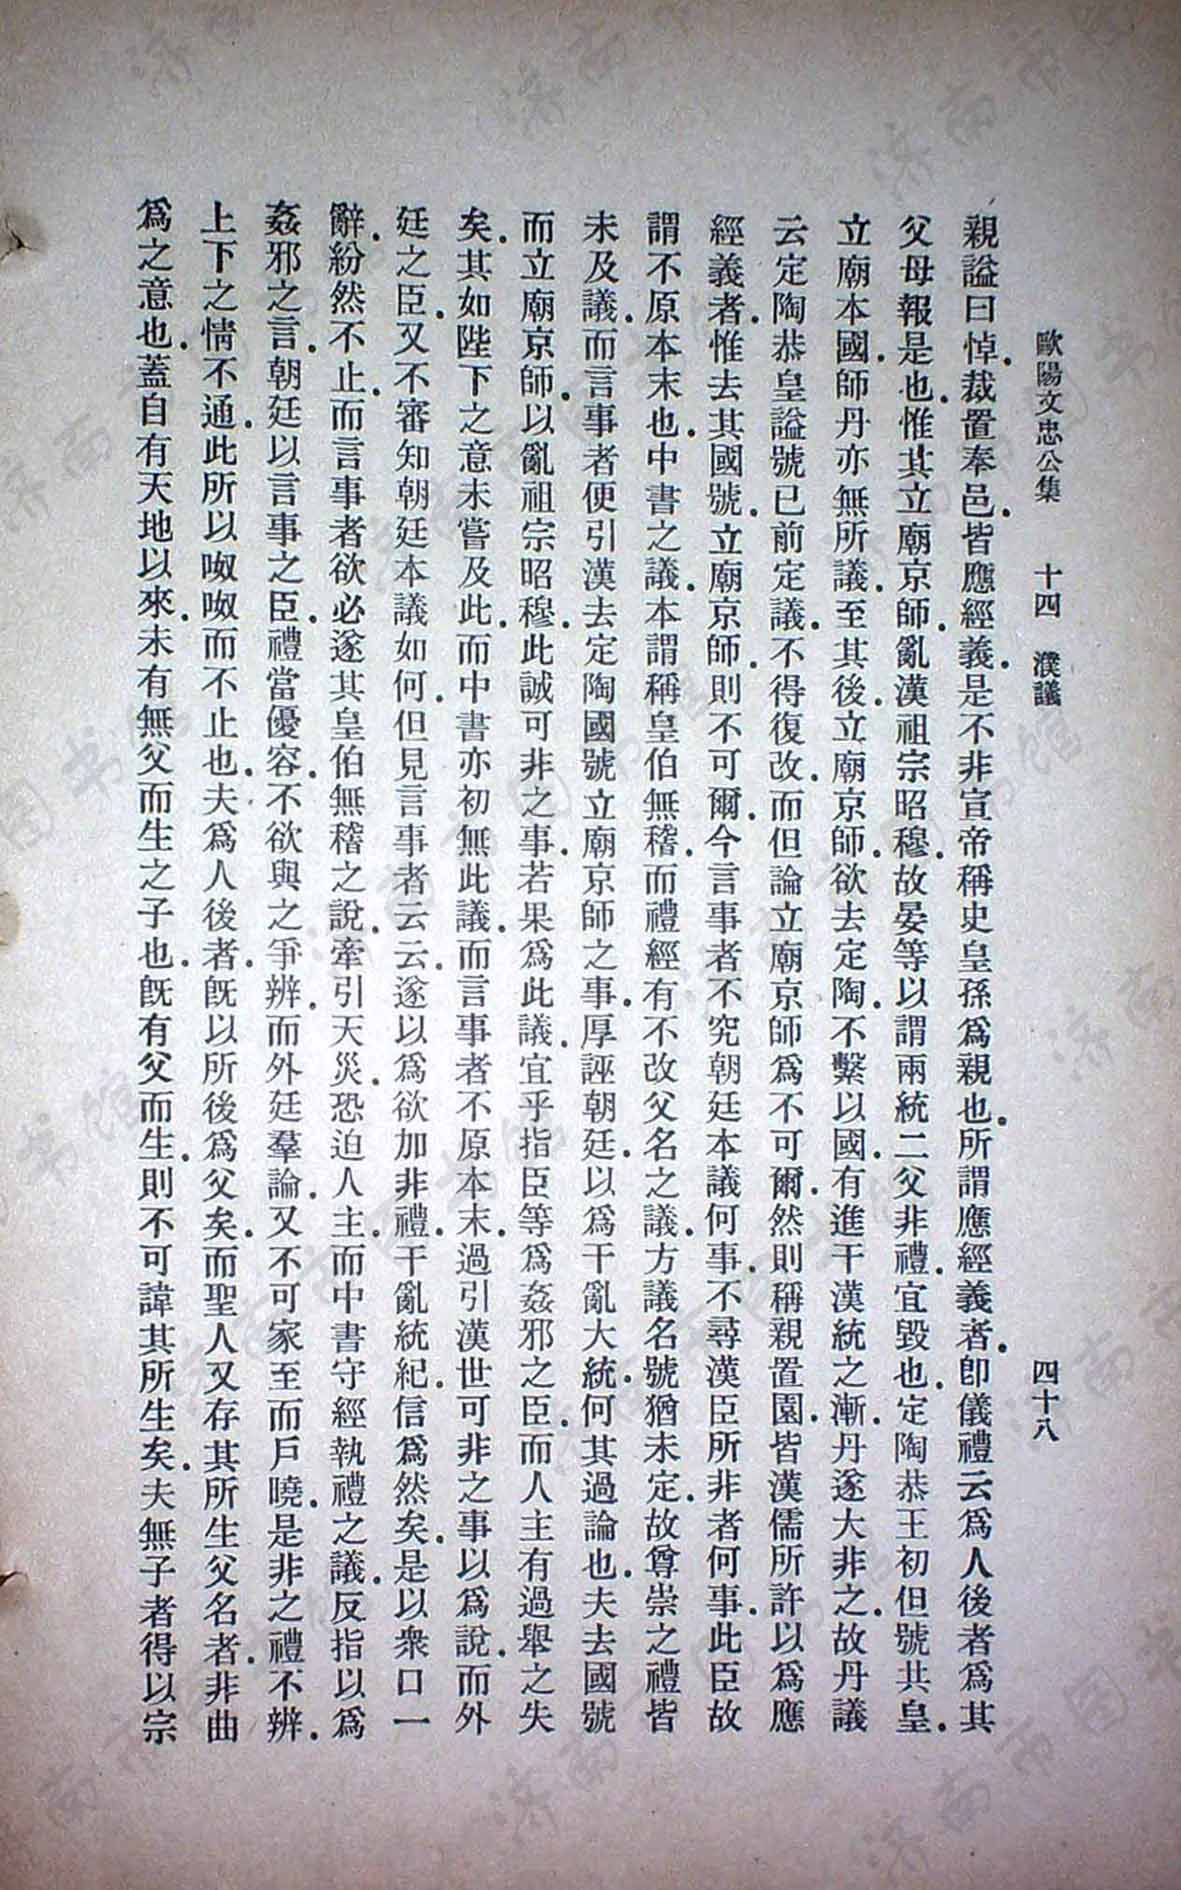 歐陽文忠公集　十四　濮議　四十八
親諡曰悼.裁置奉邑.皆應經義.是不非宣帝稱史皇孫爲親也.所謂應經義者.卽儀禮云爲人後者爲其
父母報是也.惟其立廟京師.亂漢祖宗昭穆.故晏等以謂兩統二父非禮.宜毀也.定陶恭王初但號共皇.
立廟本國.師丹亦無所議.至其後立廟京師.欲去定陶.不繫以國.有進干漢統之漸.丹遂大非之.故丹議
云定陶恭皇諡號已前定議.不得復改.而但論立廟京師爲不可爾.然則稱親置園.皆漢儒所許以爲應
經義者.惟去其國號.立廟京師.則不可爾.今言事者不究朝廷本議何事.不尋漢臣所非者何事.此臣故
謂不原本末也.中書之議.本謂稱皇伯無稽.而禮經有不改父名之議.方議名號猶未定.故尊崇之禮皆
未及議.而言事者便引漢去定陶國號立廟京師之事.厚誣朝廷.以爲干亂大統.何其過論也.夫去國號
而立廟京師.以亂祖宗昭穆.此誠可非之事.若果爲此議.宜乎指臣等爲姦邪之臣.而人主有過舉之失
矣.其如陛下之意未嘗及此.而中書亦初無此議.而言事者不原本末.過引漢世可非之事以爲說.而外
廷之臣.又不審知朝廷本議如何.但見言事者云云.遂以爲欲加非禮.干亂統紀.信爲然矣.是以衆口一
辭.紛然不止.而言事者欲必遂其皇伯無稽之說.牽引天災.恐迫人主.而中書守經執禮之議.反指以爲
姦邪之言.朝廷以言事之臣.禮當優容.不欲與之爭辨.而外廷羣論.又不可家至而戶曉.是非之禮不辨.
上下之情不通.此所以呶呶而不止也.夫爲人後者.旣以所後爲父矣.而聖人又存其所生父名者.非曲
爲之意也.蓋自有天地以來.未有無父而生之子也.旣有父而生.則不可諱其所生矣.夫無子者得以宗